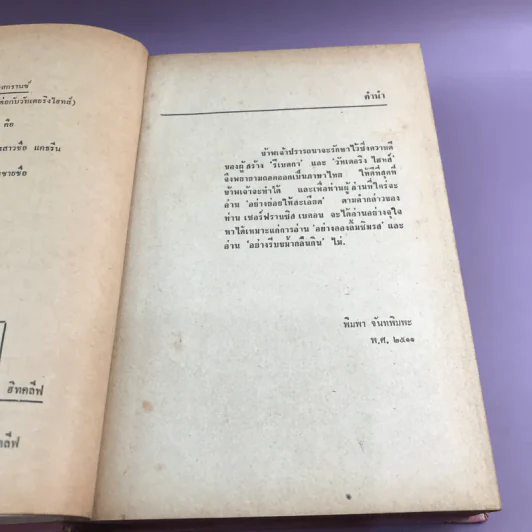 สกรานซ์
ต่อกับวัทเตอริงไฮทส์)
คือ
รสาวชื่อ แคธรีน
ชายชื่อ
ฮิทคลีฟ
คลีฟ
คำนำ
ข้าพเจ้าปรารถนาจะรักษาไว้ซึ่งความดี
ของผู้สร้าง 'รีเบคกา' และ 'วัทเตอริง ไฮทส์'
จึงพยายามถอดออกเป็นภาษาไทย ให้ดีที่สุดที่
ข้าพเจ้าจะทำได้ และเพื่อท่านผู้อ่านที่ใคร่จะ
อ่าน 'อย่างย่อยให้ละเอียด' ตามคำกล่าวของ
ท่าน เซอร์ฟรานซิส เบคอน จะได้อ่านอย่างจุใจ
หาได้เหมาะแก่การอ่าน 'อย่างลองลิ้มชิมรส' และ
อ่าน 'อย่างรีบขม้ำกลืนกิน' ไม่.
พิมพา จันทพิมพะ
พ.ศ. ๒๕๑๑